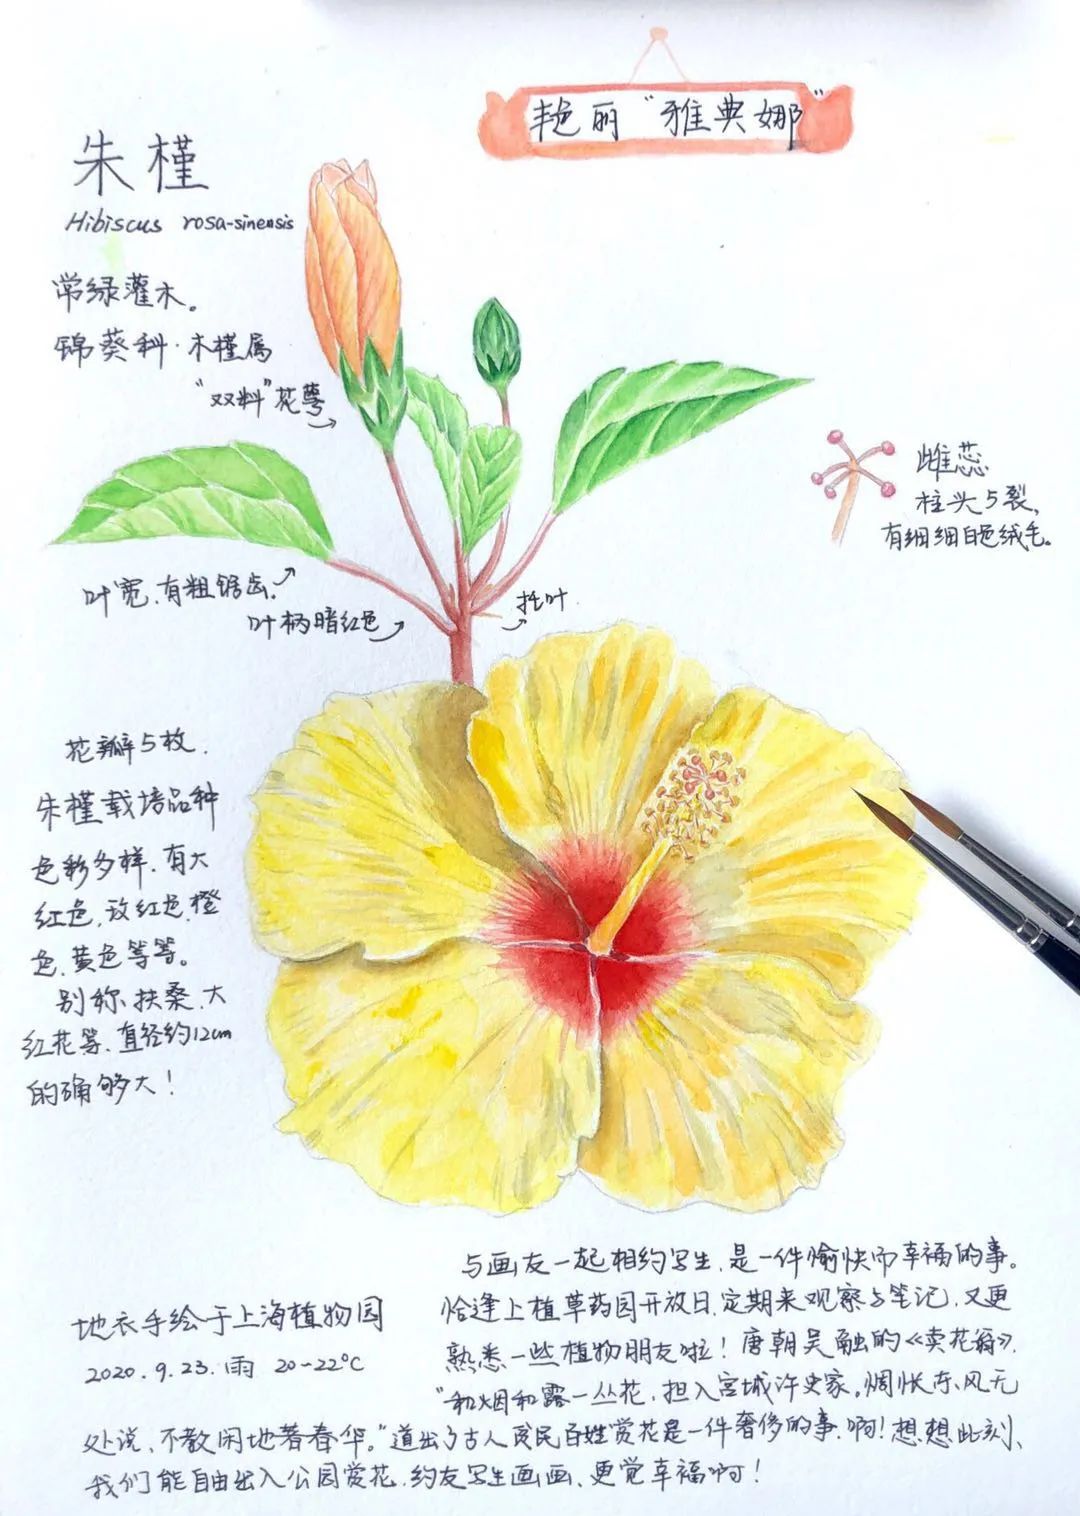 艳丽“雅典娜”
朱槿
Hibiscus rosa-sinensis
常绿灌木。
锦葵科·木槿属
“双料”花萼
雌蕊
柱头5裂，
有细细白色绒毛。
叶宽、有粗锯齿。
叶柄暗红色
托叶
花瓣5枚.
朱槿栽培品种
色彩多样.有大
红色,玫红色,橙
色.黄色等等。
别称、扶桑、大
红花等、直径约12cm
的确够大！
与画友一起相约写生,是一件愉快而幸福的事。
恰逢上植草药园开放日,定期来观察与笔记,又更
熟悉一些植物朋友啦！唐朝吴融的《卖花翁》.
“和烟和露一丛花,担入宫城许史家。惆怅东风无
处说、不教闲地著春华。”道出了古人贫民百姓赏花是一件奢侈的事.啊！想想此刻、
我们能自由出入公园赏花.约友写生画画、更觉幸福啊！
地衣手绘于上海植物园
2020.9.23.雨 20~22℃